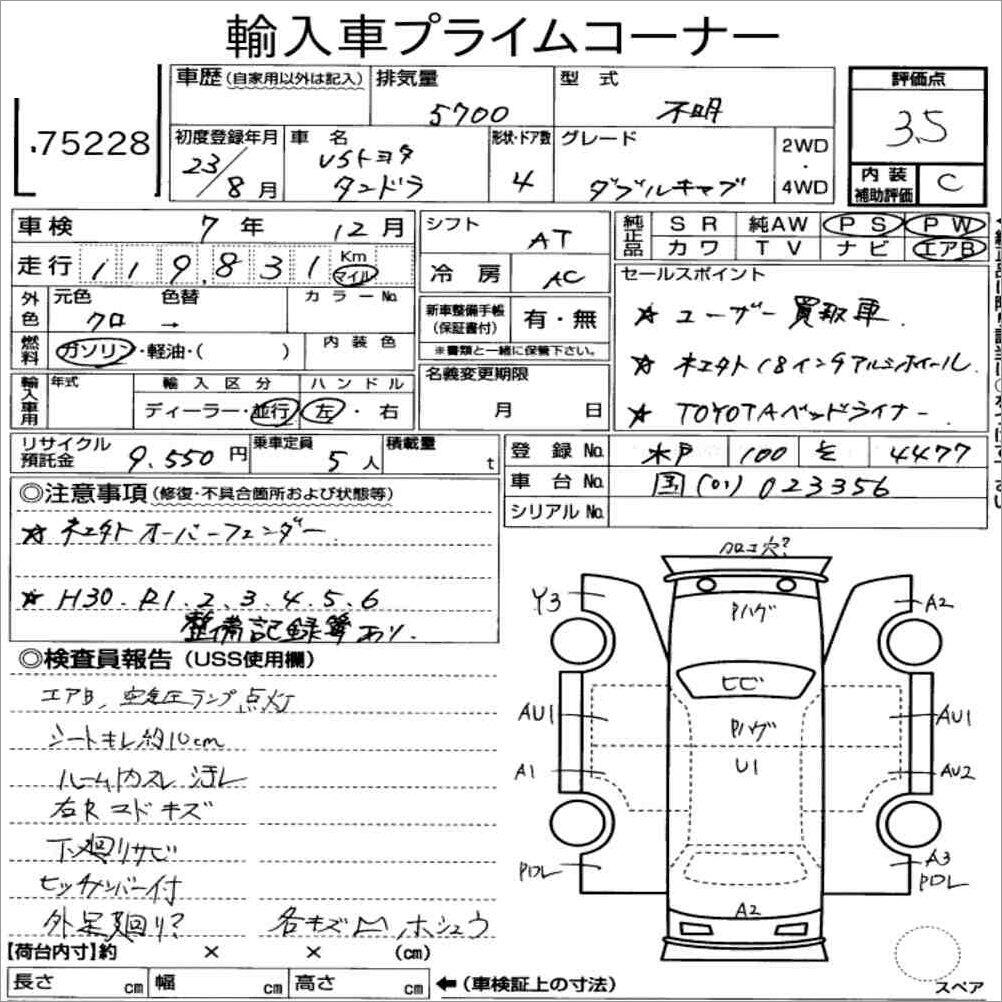 輸入車プライムコーナー
75228
車歴(自家用以外は記入) 排気量 5700 型式 不明
評価点 3.5
初度登録年月 23/8月 車名 USトヨタ タンドラ 形状・ドア数 4 グレード ダブルキャブ 2WD・4WD
内装補助評価 C
車検 7年 12月 シフト AT
純正品 SR 純AW PS PW
カワ TV ナビ エアB
走行 119,831 Km マイル 冷房 AC
セールスポイント
外色 元色 クロ 色替 → カラーNo.
新車整備手帳(保証書付) 有・無
※書類と一緒に保管下さい。
☆ ユーザー買取車.
燃料 ガソリン・軽油・( ) 内装色
☆ 社外18インチアルミホイール.
輸入車用 年式 輸入区分 ハンドル 名義変更期限
ディーラー・並行 左・右 月 日
☆ TOYOTAベッドライナー
リサイクル預託金 9.550円 乗車定員 5人 積載量 t
登録No. 水戸 100 4477
車台No. 国(01)023356
シリアルNo.
◎注意事項(修復・不具合箇所および状態等)
☆ 社外オーバーフェンダー.
☆ H30.R1.2.3.4.5.6
整備記録簿あり.
◎検査員報告(USS使用欄)
エアB、空気圧ランプ点灯
シートキレ約10cm
ルーム内スレ 汚レ
右Rコドキズ
下廻リサビ
ヒッチメンバー付
外足廻り? 各キズ凹ホシュウ
穴?
Y3 Pハゲ A2
ヒビ
AU1 Pハゲ AU1
A1 U1 AU2
PDL A3
PDL
A2
【荷台内寸】約 × × (cm)
長さ cm 幅 cm 高さ cm ←(車検証上の寸法)
スペア